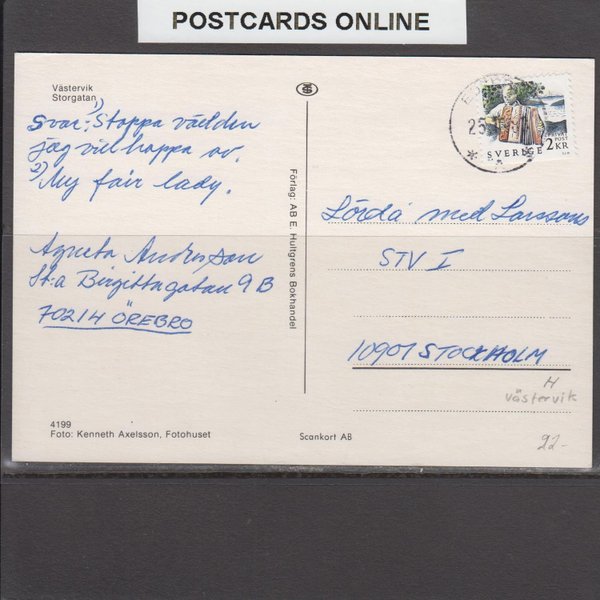 POSTCARDS ONLINE
Västervik
Storgatan
Svar: 1) Stoppa världen
jag vill hoppa av.
2) My fair lady.
Agneta Andersson
St:a Birgittagatan 9 B
70214 ÖREBRO
4199
Foto: Kenneth Axelsson, Fotohuset
Förlag: AB E. Hultgrens Bokhandel
Scankort AB
25
SVERIGE
POST
2 KR
Lördá med Larssons
STV I
10901 STOCKHOLM
H
västervik
22-